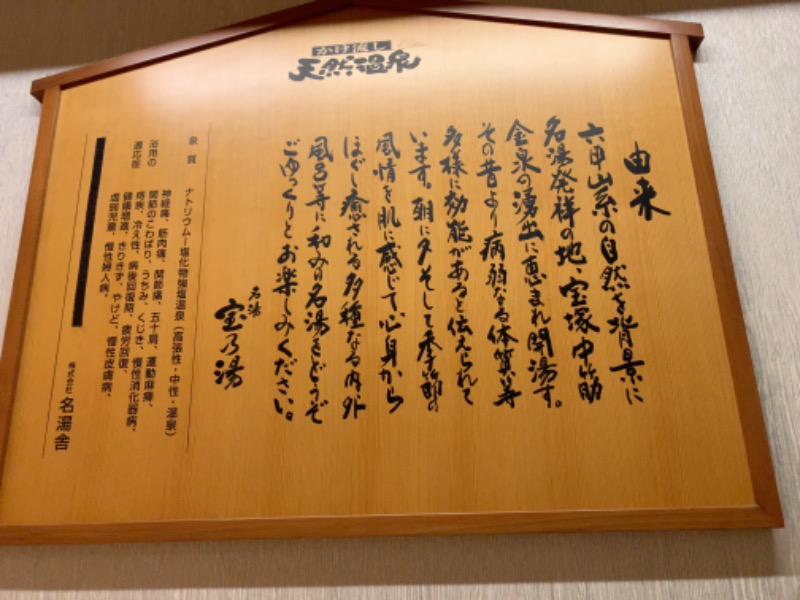 かけ流し
天然温泉
由来
六甲山系の自然を背景に
名湯発祥の地、宝塚中筋
金泉の湧出に恵まれ開湯す。
その昔より病弱なる体質等
多様に効能があると伝えられて
います。朝に夕そして季節の
風情を肌に感じて心身から
ほぐし癒される多種なる内、外
風呂等に和み名湯をどうぞ
ごゆっくりとお楽しみください。
名湯
宝乃湯
泉質 ナトリウムー塩化物強塩温泉（高張性・中性・温泉）
浴用の
適応症
神経痛、筋肉痛、関節痛、五十肩、運動麻痺、
関節のこわばり、うちみ、くじき、慢性消化器病、
痔疾、冷え性、病後回復期、疲労回復、
健康増進、きりきず、やけど、慢性皮膚病、
虚弱児童、慢性婦人病、
株式会社 名湯舎